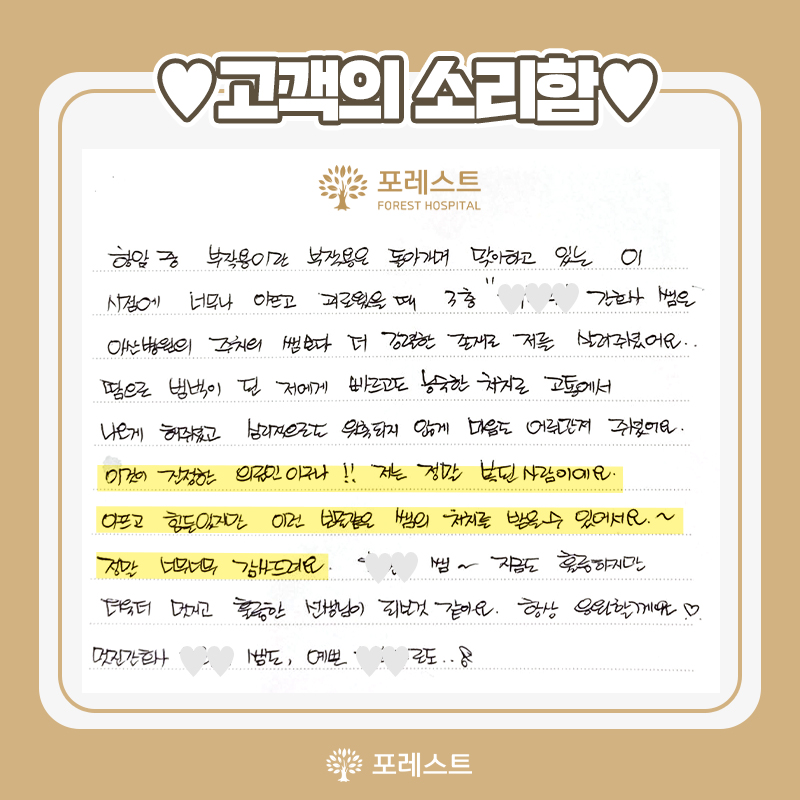 ♥고객의 소리함♥
포레스트
FOREST HOSPITAL
항암 중 부작용이란 부작용은 돌아가며 맞아하고 있는 이
시점에 너무나 아프고 괴로웠을 때 3층 " 간호사 쌤은
아산병원의 주치의 쌤보다 더 강력한 존재로 저를 살려주셨어요..
땀으로 범벅이 된 저에게 빠르고도 능숙한 처치로 고통에서
나오게 해주셨고 심리적으로도 위축되지 않게 마음도 어루만져 주셨어요.
이것이 진정한 의료인이구나!! 저는 정말 복된 사람이에요.
아프고 힘든 있지만 이런 보물같은 쌤의 처치를 받을수 있어서요.~
정말 너무너무 감사드려요. 쌤~ 지금도 훌륭하지만
더욱더 멋지고 훌륭한 선생님이 되실것 같아요. 항상 응원할게요♡.
멋진간호사 쌤도, 예쁜 로도..
포레스트